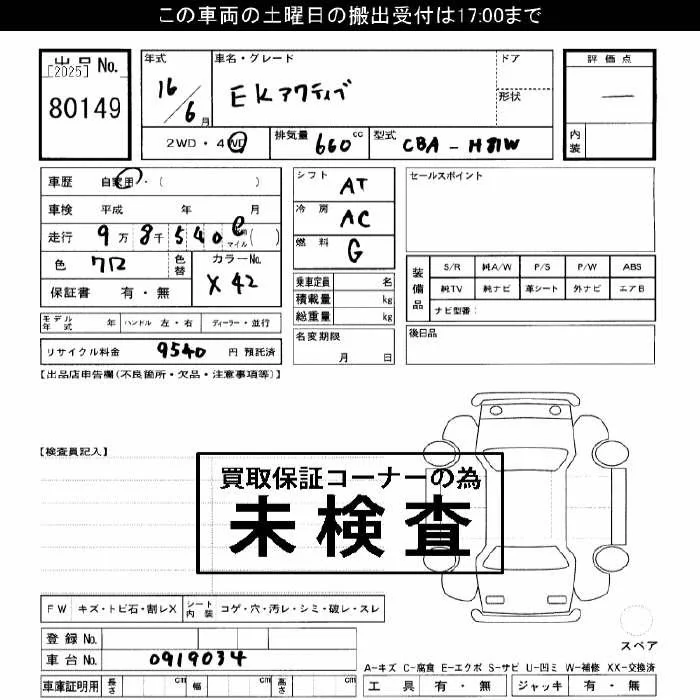 この車両の土曜日の搬出受付は17:00まで
出品 No.
[2025]
80149
年式 16/6月
車名・グレード EKアクティブ
ドア
形状
2WD・4WD
排気量 660 cc
型式 CBA-H81W
評価点
—
内装
車歴 自家用・( )
車検 平成 年 月
走行 9万8千540 マイル( )
色 クロ
色替
カラーNo. X42
保証書 有・無
シフト AT
冷房 AC
燃料 G
乗車定員 名
積載量 kg
総重量 kg
名変期限
月 日
セールスポイント
装備品
S/R 純A/W P/S P/W ABS
純TV 純ナビ 革シート 外ナビ エアB
ナビ型番:
後日品
モデル年式 年 ハンドル 左・右 ディーラー・並行
リサイクル料金 9540 円 預託済
【出品店申告欄(不良箇所・欠品・注意事項等)】
【検査員記入】
買取保証コーナーの為
未検査
FW キズ・トビ石・割レX
シート内装 コゲ・穴・汚レ・シミ・破レ・スレ
登録 No.
車台 No. 0919034
車庫証明用 長さ cm 幅 cm 高さ cm
スペア
A-キズ C-腐食 E-エクボ S-サビ U-凹ミ W-補修 XX-交換済
工具 有・無 ジャッキ 有・無